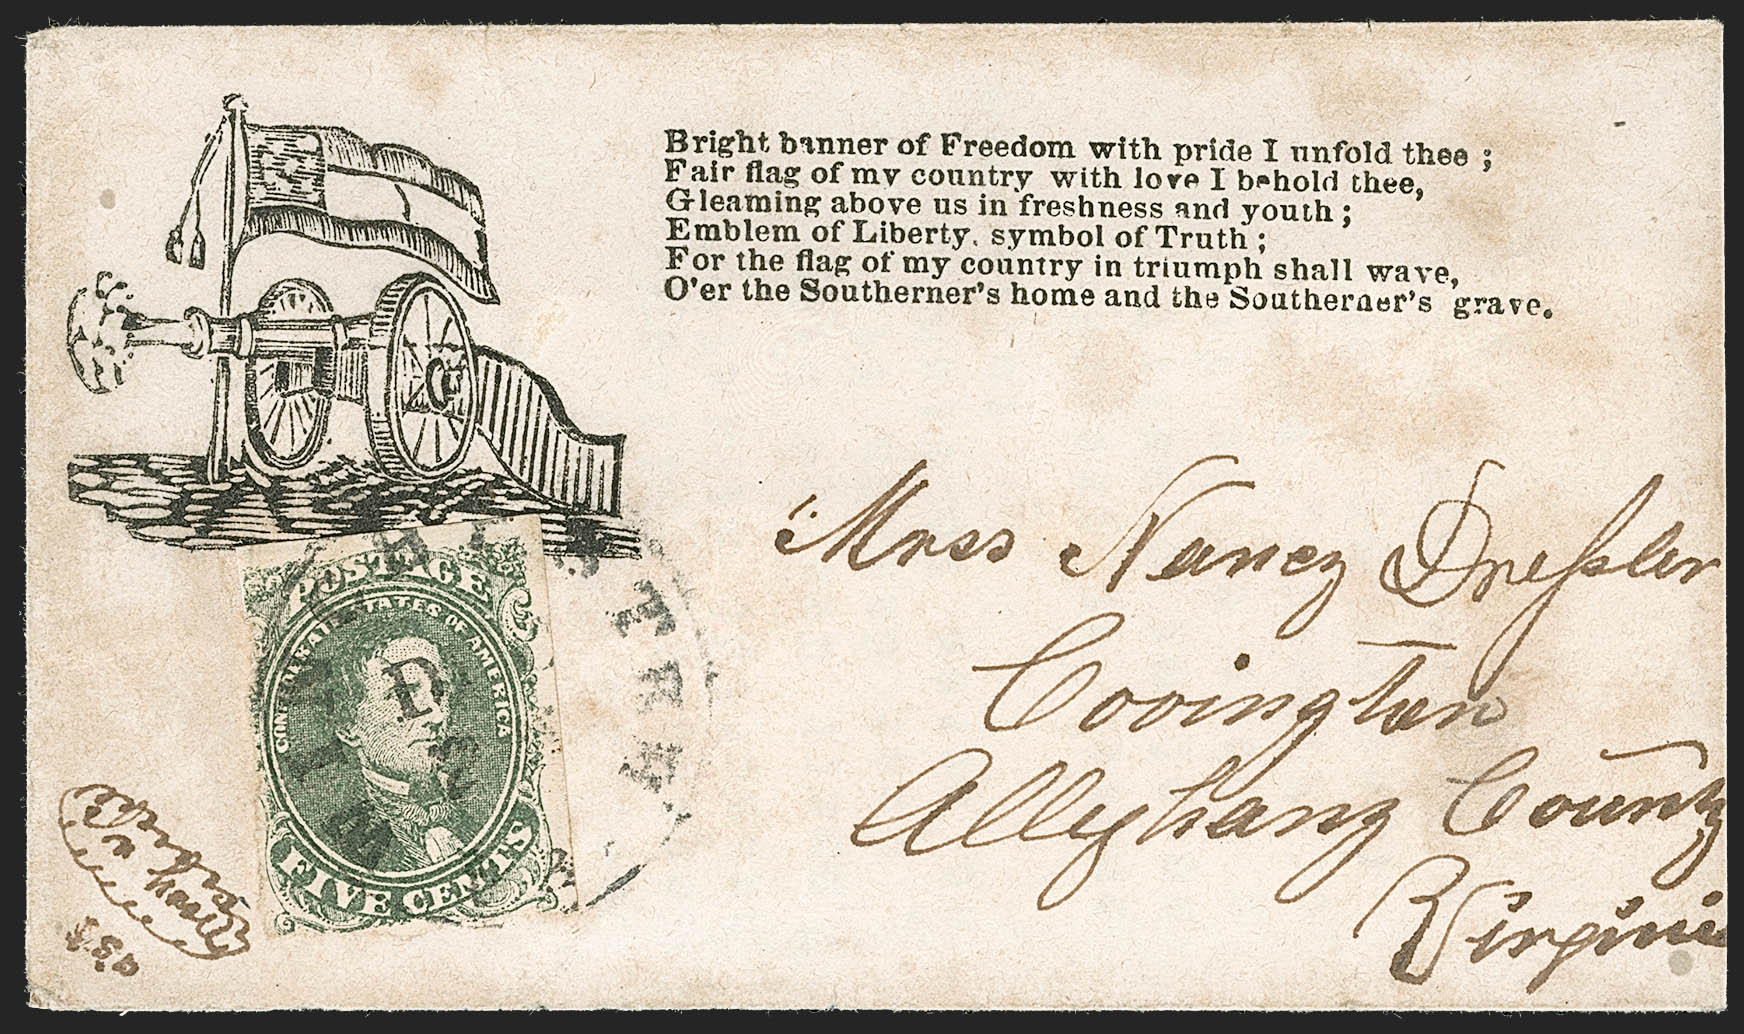 Bright banner of Freedom with pride I unfold thee ;
Fair flag of my country with love I behold thee,
Gleaming above us in freshness and youth ;
Emblem of Liberty, symbol of Truth ;
For the flag of my country in triumph shall wave,
O'er the Southerner's home and the Southerner's grave.
Mrss Nancy Dressler
Covington
Alleghany County
Virginia
POSTAGE
CONFEDERATE STATES OF AMERICA
FIVE CENTS
D